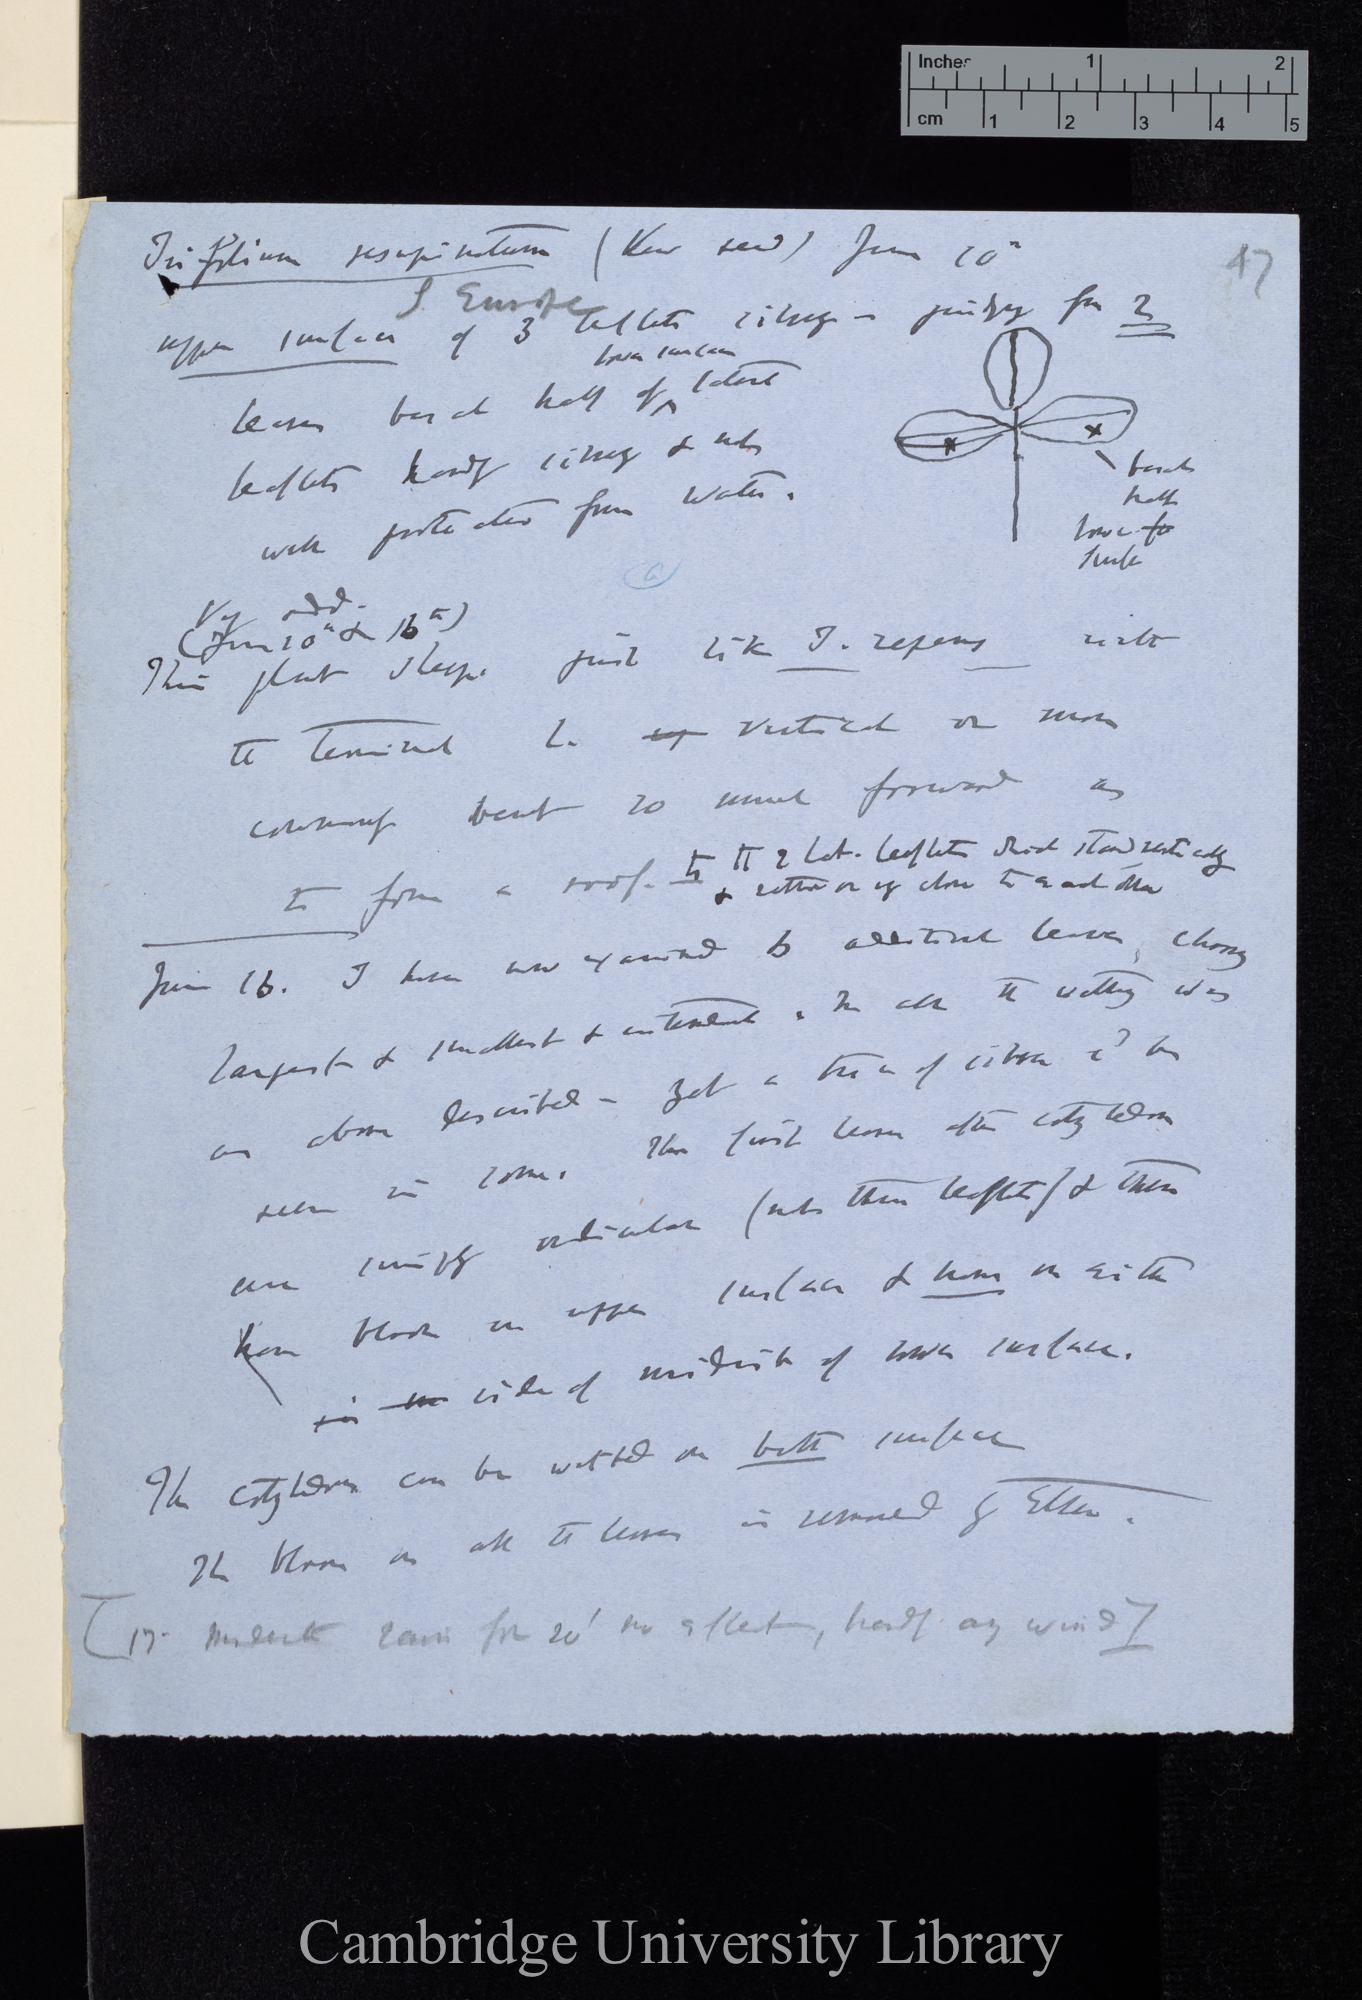 Inches 1 2
cm 1 2 3 4 5
47
Trifolium resupinatum (Kew seed) June 10th
S. Europe
upper surface of 3 leaflets silvery – judging from 2
leaves basal half of lower surface lateral
leaflets hardly silvery & not
well protected from water.
basal
half
lower
surface
Very odd.
(June 10th & 16th)
This plant sleeps just like T. repens with
the terminal l. vertical or more
commonly bent so much forward as
to form a roof. to the 2 lat. leaflets which stand vertically
& close to each other
June 16. I have now examined 6 additional leaves, choosing
largest & smallest & intermediate. In all the wetting was
as above described – yet a trace of silver cd be
seen in some. The first leaves after cotyledons
are simply orbicular (not three leaflets) & these
have bloom on upper surface & none on either
side of midrib of lower surface.
The cotyledons can be wetted on both surfaces
The bloom on all the leaves is removed by Ether.
[17 moderate rain for 20' no effect, hardly any wind]
Cambridge University Library